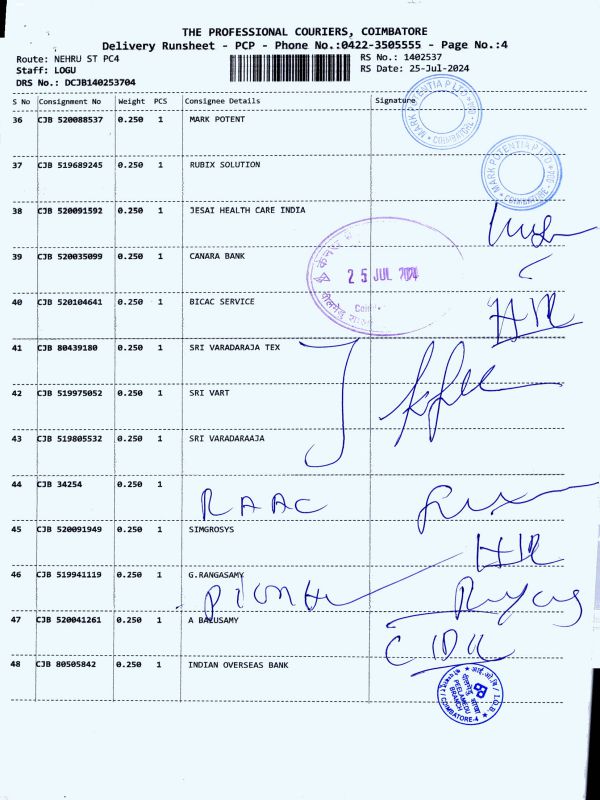 THE PROFESSIONAL COURIERS, COIMBATORE
Delivery Runsheet - PCP - Phone No.:0422-3505555 - Page No.:4
Route: NEHRU ST PC4 RS No.: 1402537
Staff: LOGU RS Date: 25-Jul-2024
DRS No.: DCJB140253704
S No Consignment No Weight PCS Consignee Details Signature
36 CJB 520088537 0.250 1 MARK POTENT
MARK POTENTIA P LTD COIMBATORE
37 CJB 519689245 0.250 1 RUBIX SOLUTION
MARK POTENTIA P LTD COIMBATORE
38 CJB 520091592 0.250 1 JESAI HEALTH CARE INDIA
39 CJB 520035099 0.250 1 CANARA BANK
25 JUL 2024
40 CJB 520104641 0.250 1 BICAC SERVICE
41 CJB 80439180 0.250 1 SRI VARADARAJA TEX
42 CJB 519975052 0.250 1 SRI VART
43 CJB 519805532 0.250 1 SRI VARADARAAJA
44 CJB 34254 0.250 1
RAAC
45 CJB 520091949 0.250 1 SIMGROSYS
46 CJB 519941119 0.250 1 G.RANGASAMY
47 CJB 520041261 0.250 1 A BALUSAMY
48 CJB 80505842 0.250 1 INDIAN OVERSEAS BANK
I.O.B.
PEELAMEDU
BRANCH
COIMBATORE-4